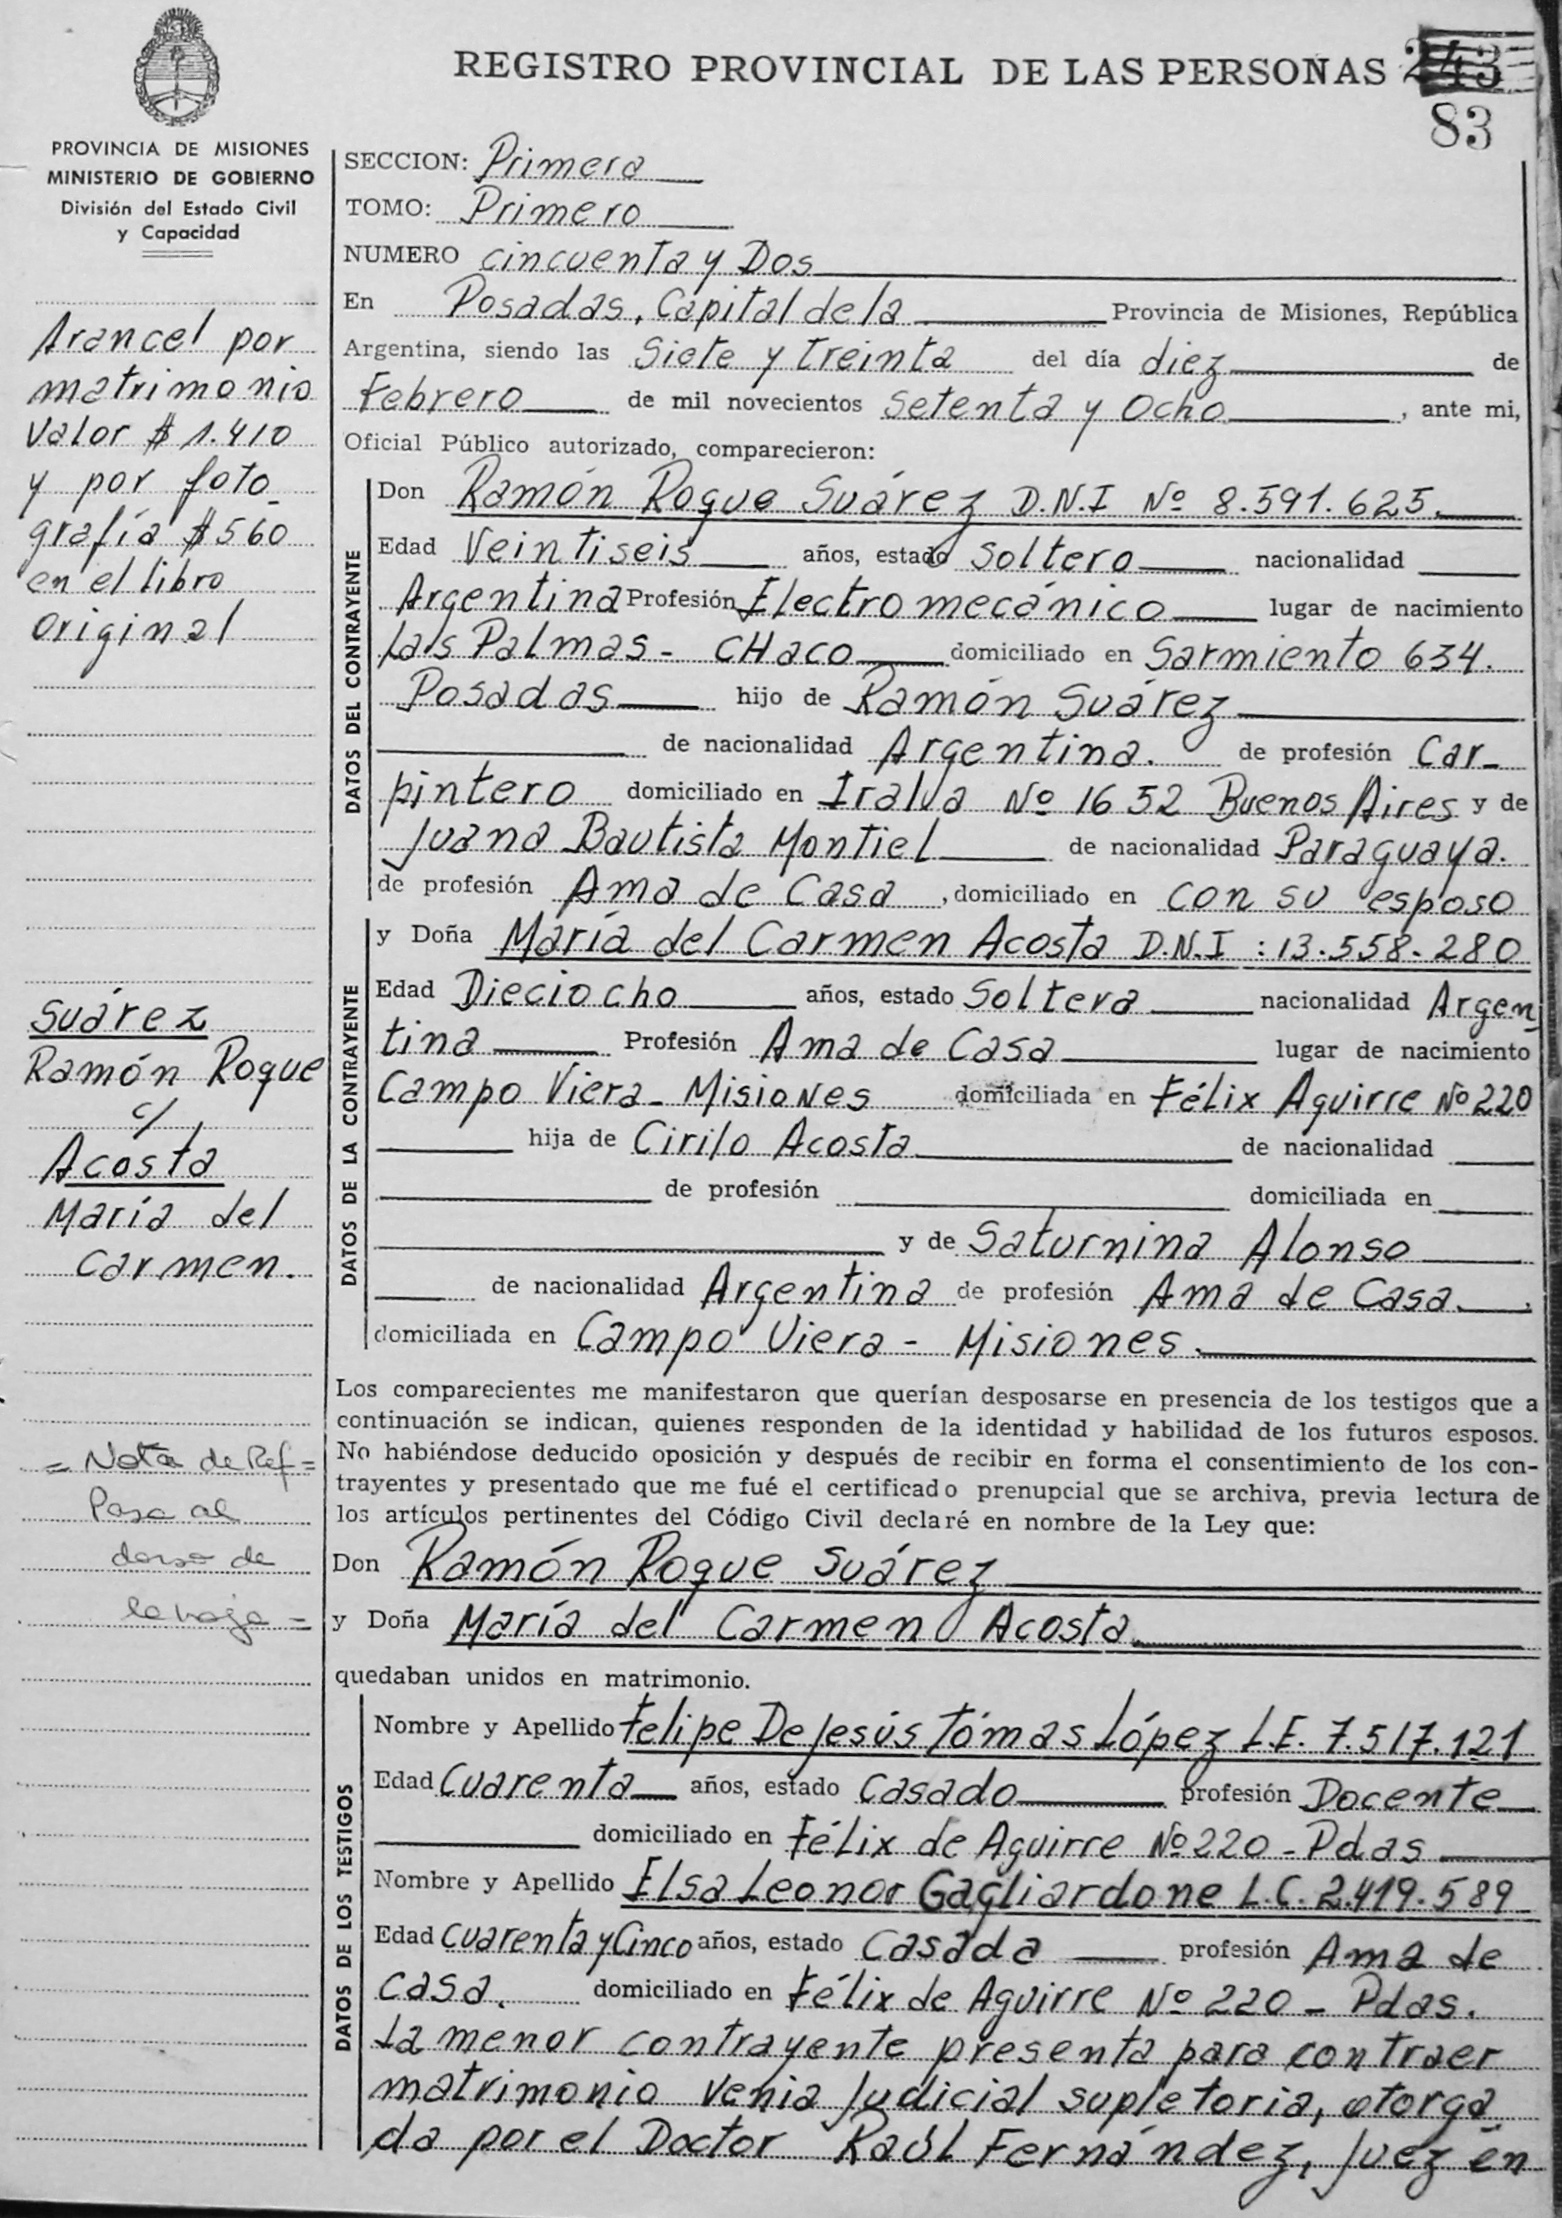 REGISTRO PROVINCIAL DE LAS PERSONAS 243
83
PROVINCIA DE MISIONES
MINISTERIO DE GOBIERNO
División del Estado Civil
y Capacidad
Arancel por
matrimonio
Valor $ 1.410
y por foto
grafía $560
en el libro
original
Suárez
Ramón Roque
c/
Acosta
María del
Carmen.
= Nota de Ref =
Pasa al
dorso de
la hoja =
SECCION: Primera
TOMO: Primero
NUMERO cincuenta y Dos
En Posadas, Capital de la Provincia de Misiones, República
Argentina, siendo las Siete y treinta del día diez de
Febrero de mil novecientos setenta y ocho, ante mi,
Oficial Público autorizado, comparecieron:
DATOS DEL CONTRAYENTE
Don Ramón Roque Suárez D.N.I Nº 8.591.625.
Edad Veintiseis años, estado soltero nacionalidad
Argentina Profesión Electromecánico lugar de nacimiento
Las Palmas - CHaco domiciliado en Sarmiento 634.
Posadas hijo de Ramón Suárez
de nacionalidad Argentina. de profesión Car-
pintero domiciliado en Iralva Nº 1652 Buenos Aires y de
Juana Bautista Montiel de nacionalidad Paraguaya.
de profesión Ama de Casa, domiciliado en con su esposo
DATOS DE LA CONTRAYENTE
y Doña María del Carmen Acosta D.N.I : 13.558.280
Edad Dieciocho años, estado Soltera nacionalidad Argen
tina Profesión Ama de Casa lugar de nacimiento
Campo Viera - Misiones domiciliada en Félix Aguirre Nº 220
hija de Cirilo Acosta de nacionalidad
de profesión domiciliada en
y de Saturnina Alonso
de nacionalidad Argentina de profesión Ama de Casa.
domiciliada en Campo Viera - Misiones.
Los comparecientes me manifestaron que querían desposarse en presencia de los testigos que a
continuación se indican, quienes responden de la identidad y habilidad de los futuros esposos.
No habiéndose deducido oposición y después de recibir en forma el consentimiento de los con-
trayentes y presentado que me fué el certificado prenupcial que se archiva, previa lectura de
los artículos pertinentes del Código Civil declaré en nombre de la Ley que:
Don Ramón Roque Suárez
y Doña María del Carmen Acosta.
quedaban unidos en matrimonio.
DATOS DE LOS TESTIGOS
Nombre y Apellido Felipe De Jesús Tómas López L.E. 7.517.121
Edad Cuarenta años, estado casado profesión Docente
domiciliado en Félix de Aguirre Nº 220 - Pdas
Nombre y Apellido Elsa Leonor Gagliardone L.C. 2.419.589
Edad Cuarenta y Cinco años, estado Casada profesión Ama de
casa. domiciliado en Félix de Aguirre Nº 220 - Pdas.
La menor contrayente presenta para contraer
matrimonio Venia Judicial supletoria, otorga
da por el Doctor Raúl Fernández, Juez en